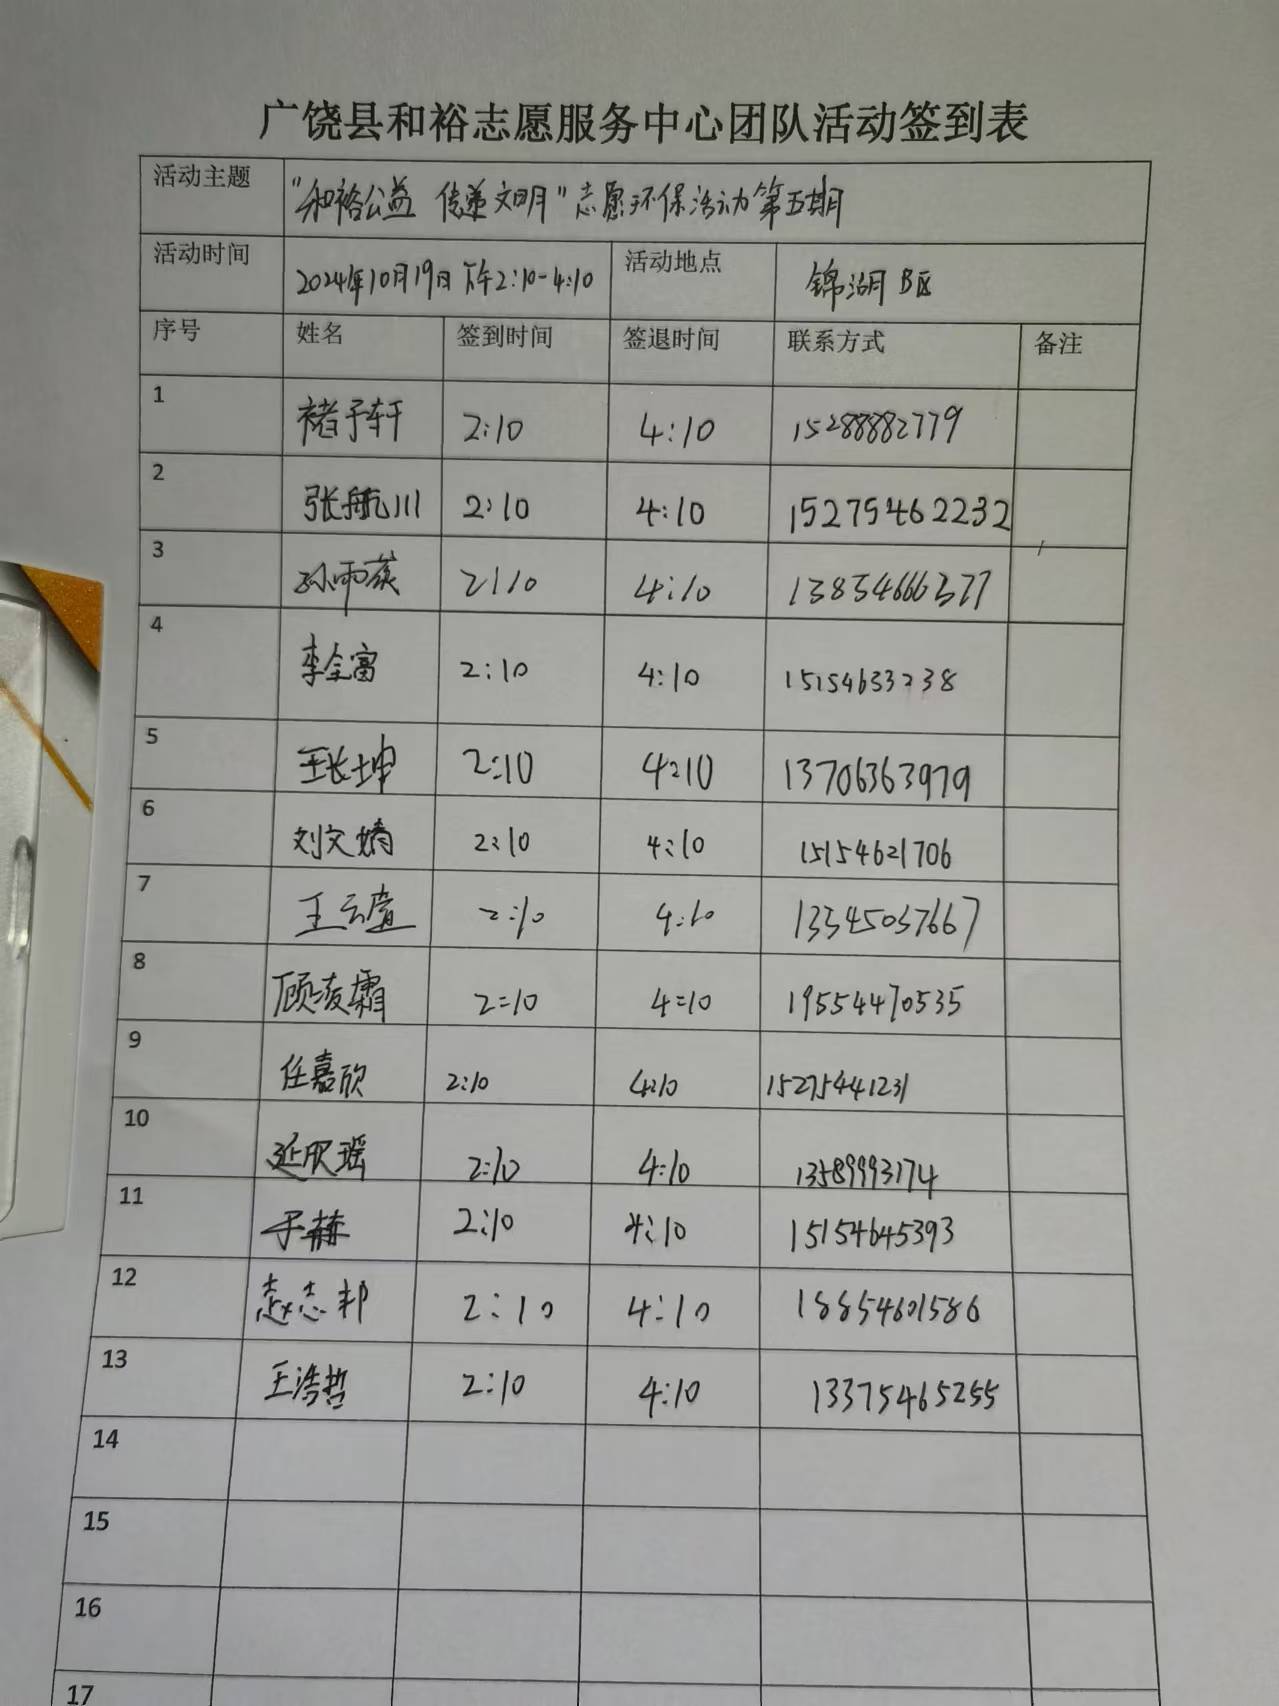 广饶县和裕志愿服务中心团队活动签到表
活动主题 "和裕公益 传递文明"志愿环保活动第五期
活动时间 2024年10月19日下午2:10-4:10 活动地点 锦湖B区
序号 姓名 签到时间 签退时间 联系方式 备注
1 褚子轩 2:10 4:10 15288882779
2 张航川 2:10 4:10 15275462232
3 2:10 4:10 13854666377
4 李全富 2:10 4:10 15154633238
5 王长坤 2:10 4:10 13706363979
6 刘文婧 2:10 4:10 15154621706
7 2:10 4:10 13345037667
8 顾凌霜 2=10 4=10 19554470535
9 任嘉欣 2:10 4:10 15275441231
10 延欣瑶 2:10 4:10 13589993174
11 于赫 2:10 4:10 15154645393
12 赵志邦 2:10 4:10 18854601586
13 王浩哲 2:10 4:10 13375465255
14
15
16
17